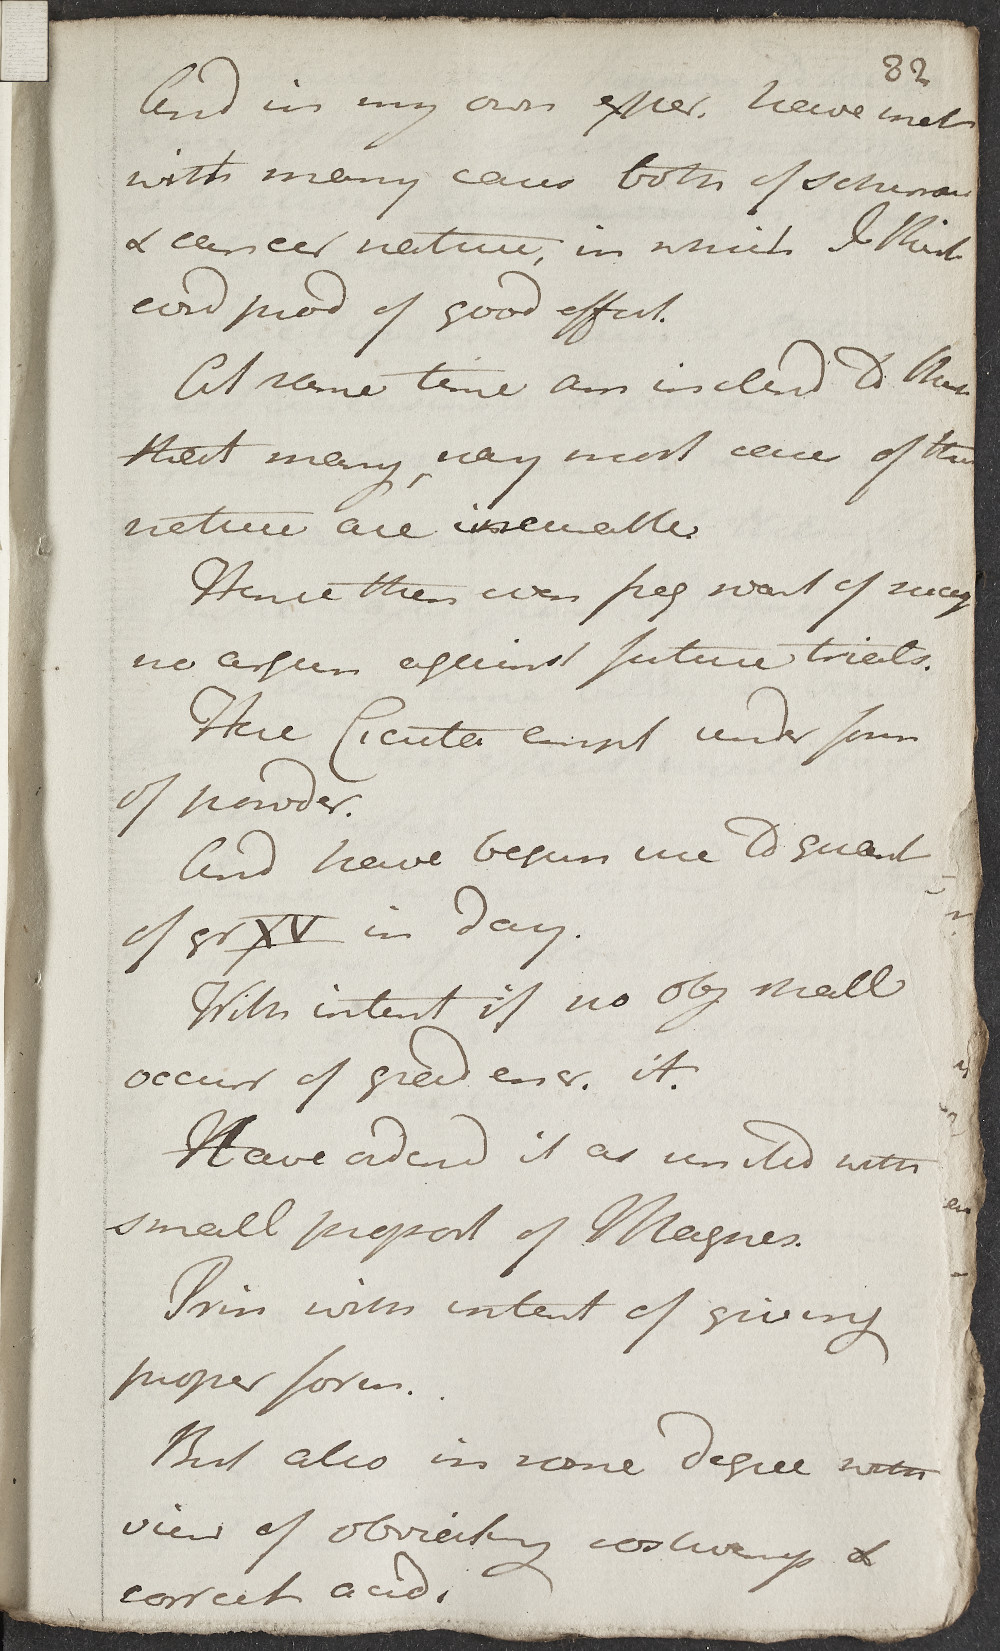 82
And in my own exper. have met
with many cases both of schirrous
& cancer nature, in which I think
cord prod of good effect.
At same time am inclend to think
that many, nay most case of this
nature are incurable.
Hence then even freq want of success
no argum against future trials.
Here Cicuta empl under form
of powder.
And have begun use to quant
of gr XV in day.
With intent if no obj shall
occurr of grad encr. it.
Have ordend it as united with
small proport of Magnes.
Prin with intent of giving
proper form.
But also in some degree with
view of obviating costiveness &
correct acid.